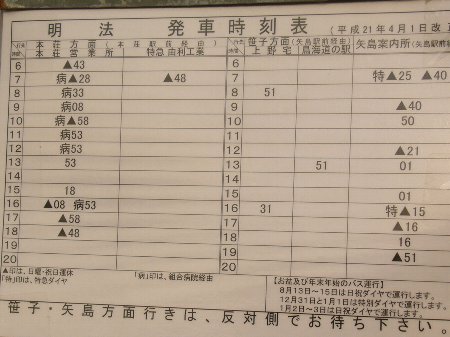 明 法 発車時刻表 (平成21年4月1日改正
行先 時間 本荘方面(本荘駅前経由) 行先 時間 笹子方面(矢島駅前経由) 矢島案内所(矢島駅前
本荘営業所 特急 由利工業 上野宅 鳥海道の駅
6 ▲43 6
7 病▲28 ▲48 7 特▲25 ▲40
8 病33 8 51
9 病08 9 ▲40
10 病▲58 10 50
11 病08 11
12 病53 12 ▲21
13 53 13 51 01
14 14
15 18 15 01
16 ▲08 病53 16 31 特▲15
17 ▲58 17 ▲16
18 ▲48 18 16
19 19 ▲51
20 20
▲印は、日曜・祝日運休 「病」印は、組合病院経由
「特」印は、特急ダイヤ
【お盆及び年末年始のバス運行】
8月13日~15日は日祝ダイヤで運行します。
12月31日と1月1日は特別ダイヤで運行します。
1月2日~3日は日祝ダイヤで運行します。
笹子・矢島方面行きは、反対側でお待ち下さい。